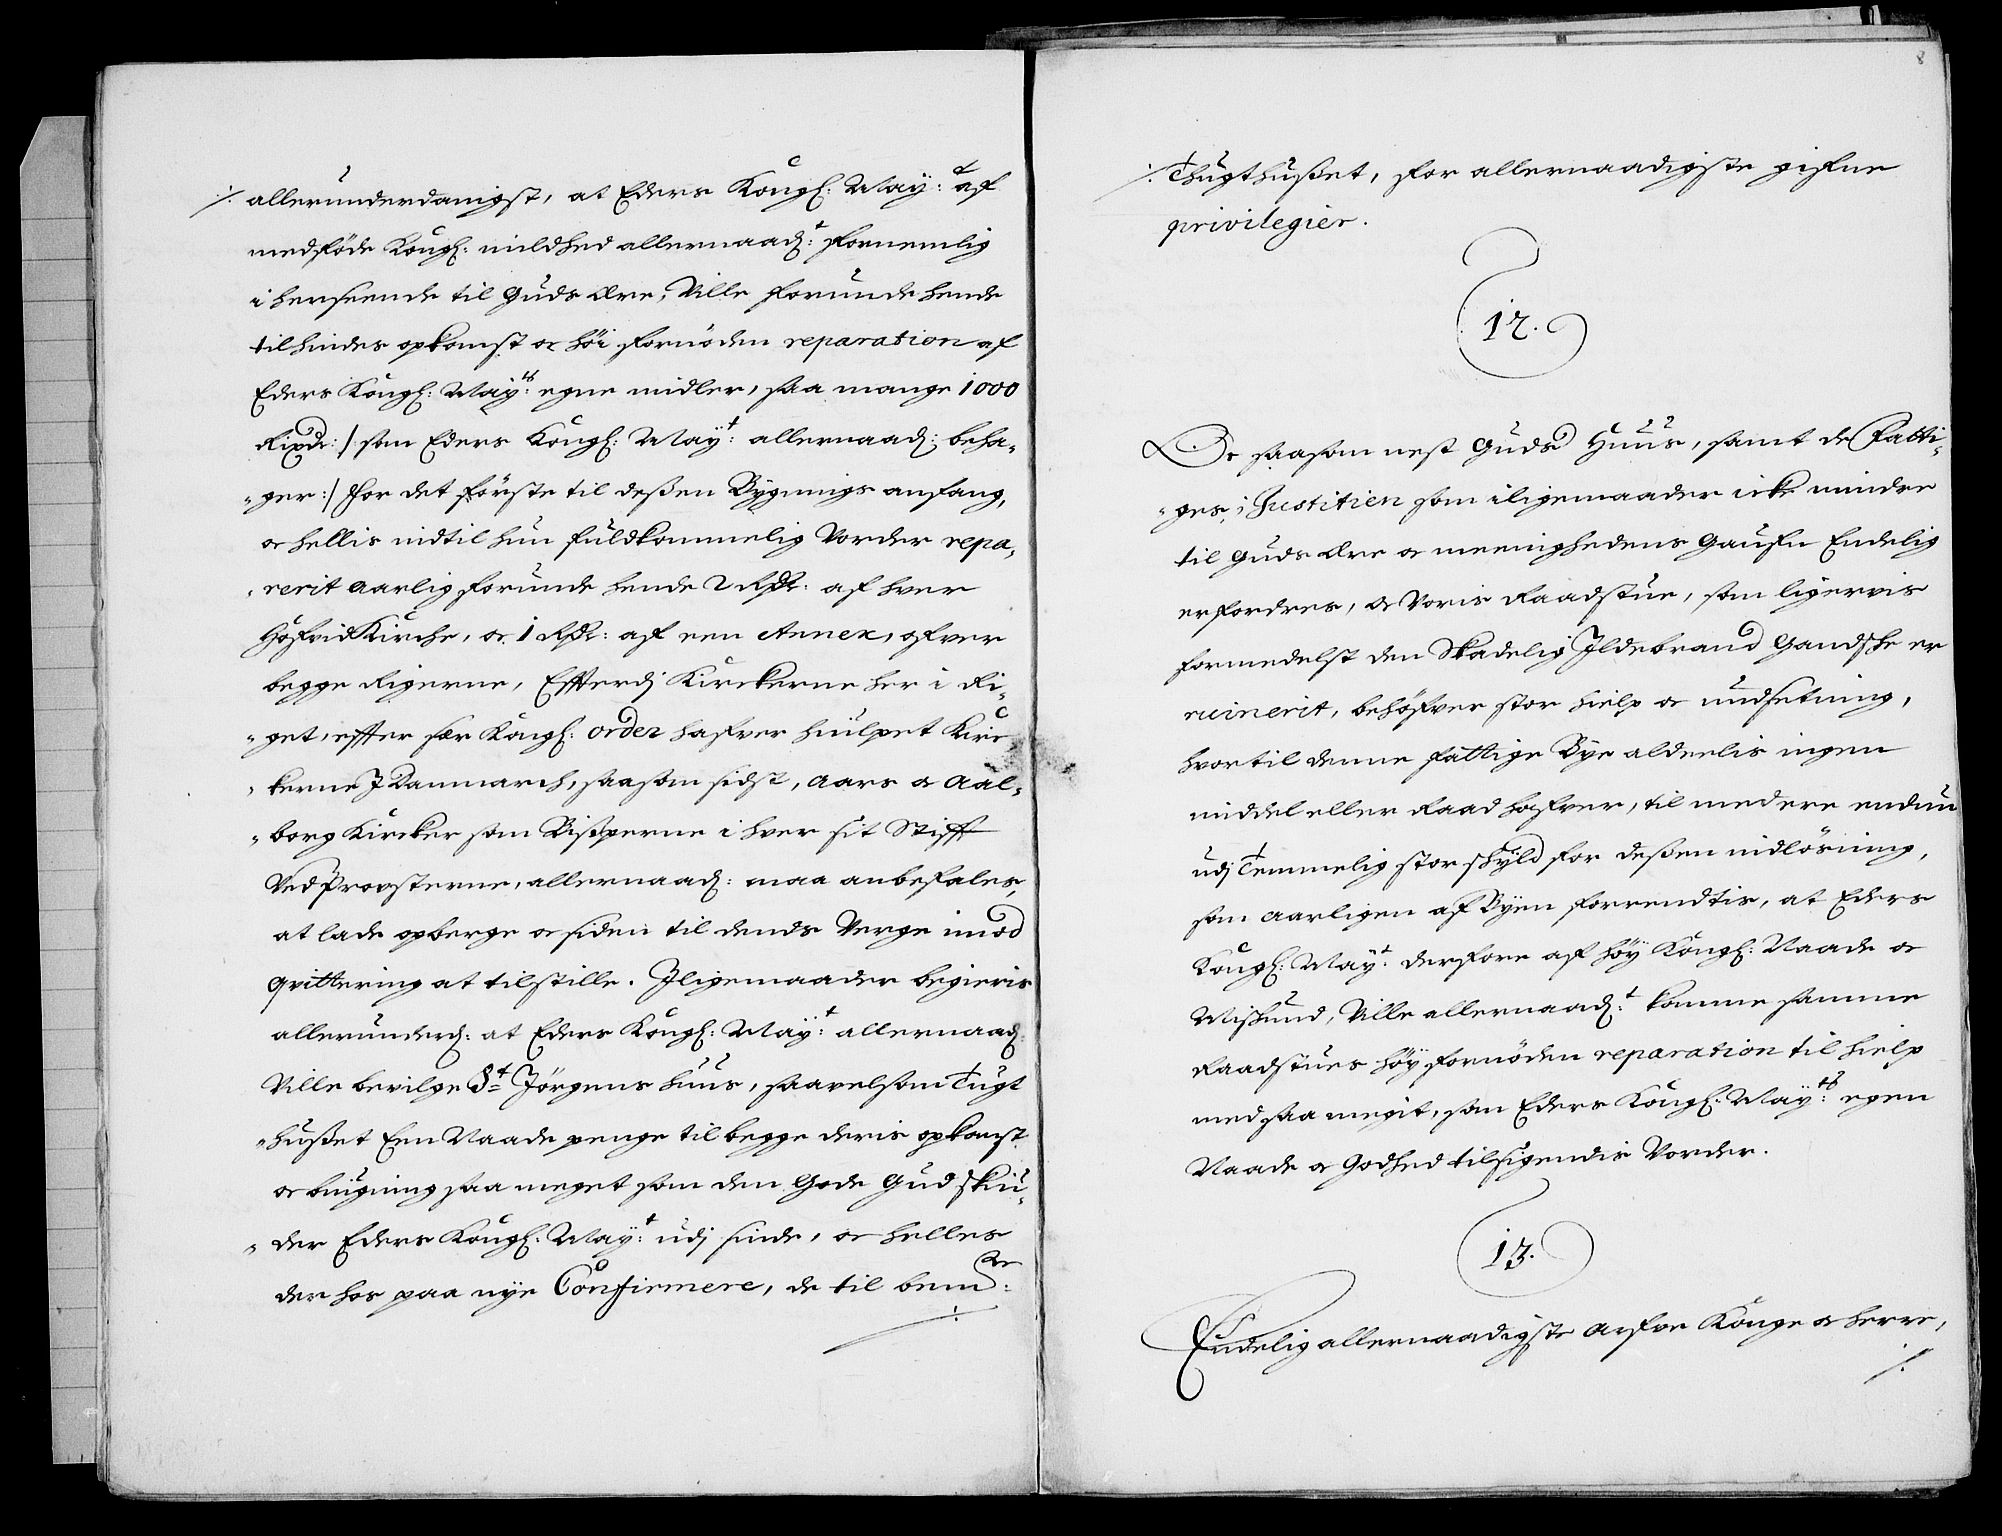 ⁒ allerunderdanigst, at Eders Kongl: May:t af
medföde Kongl: mildhed allernaad:t fornemlig
i henseende til Guds Ære, Ville forunde hende
til hindes opkomst oc höi fornöden reparation af
Eders Kongl: May:ts egne midler, saa mange 1000
Rixdr: /: som Eders Kongl: May:t allernaad: beha-
-ger :/ for det förste til deßen Bygnings anfang,
oc hellis indtil hun fuldkommelig Vorder repa-
-rerit aarlig forunde hende 2 Rdr: af hver
HofvidKirche, oc 1 Rdr: af een Annex, ofver
begge Rigerne, Effterdj Kirckerne her i Ri-
-get, effter sær Kongl: order hafver hiulpet Kirc
-kerne J Danmarch, saasom sidst, Aars oc Aal-
-borg Kircker som Bisperne i hver sit Stifft
Ved Provsterne, allernaad: maa anbefales,
at lade opberge oc siden til dends Verge imod
qvittering at tilstille. Jligemaader begieris
allerunderd: at Eders Kongl: May:t allernaad:
Ville bevilge St Jörgens huus, saavelsom Tugt
-hußet Een Naade penge til begge deris opkomst
oc bugning saa meget som den Gode Gud skiu-
-der Eders Kongl: May:t udj sinde, oc helles
der hos paa nye Confirmere, de til bem:te
⁒
8
⁒ Tugthußet, for allernaadigste gifne
privilegier.
12.
Oc saasom nest Guds Huus, samt de Fatti-
-ges, i Justitien som iligemaader icke mindre
til Guds Ære oc meenighedens Gaufn Endelig
erfordres, oc Voris Raadstue, som ligervis
formedelst den Skadelig Jldebrand Gandske er
ruinerit, behöfver stor hielp oc undsetning,
hvortil denne fattige Bye aldeelis ingen
middel eller Raad hafver, til med ere endnu
udj Temmelig stor skyld for deßen indlösning,
som aarligen af Byen forrendtis, at Eders
Kongl: May:t derfore af höy Kongl: Naade oc
Miskund, Ville allernaad:t komme samme
Raadstues höy fornöden reparation til hielp
med saa megit, som Eders Kongl: May:ts egen
Naade oc Godhed tilsigendis Vorder.
13.
Endelig allernaadigste Arfve Konge oc herre,
⁒